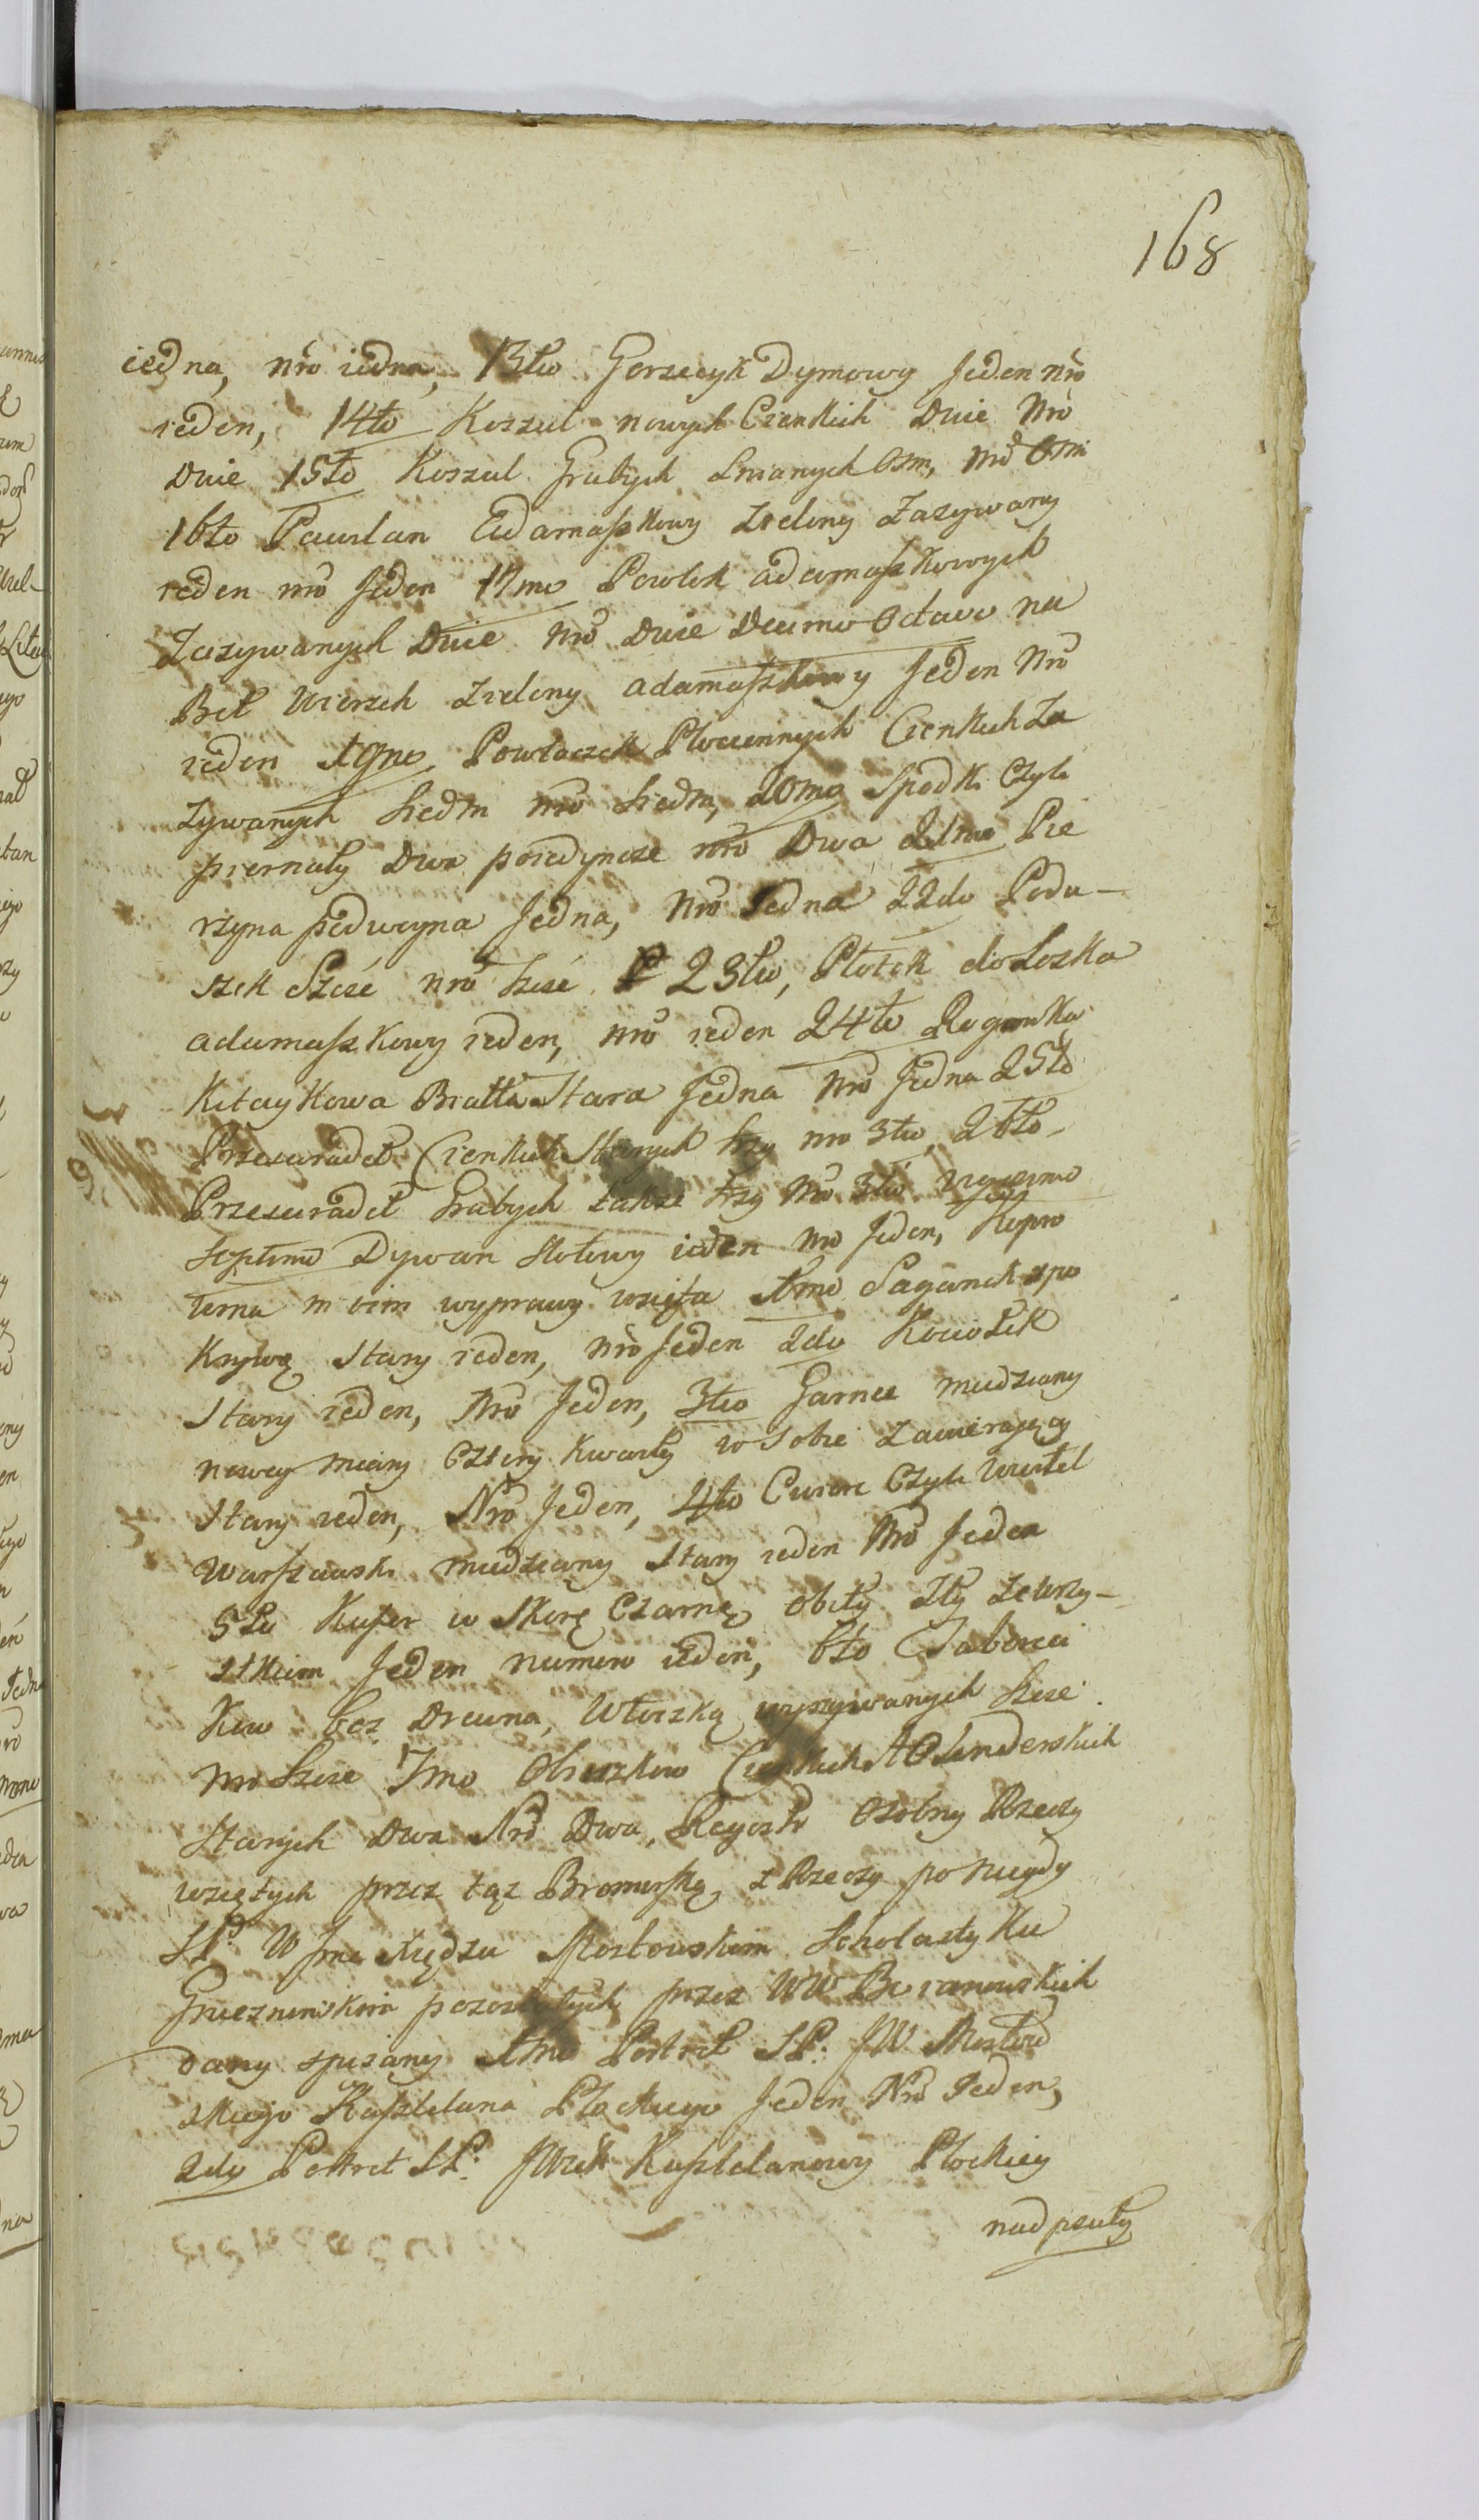 168
iedna, nro iedna, 13tio Gorsecyk Dymowy Jeden nro
ieden, 14to Koszul nowych Cienkich Dwie Nro
Dwie 15to Koszul Grubych Lnianych Osm, nro Osm
16to Pawilan Adamaszkowy Zielony Zazywany
ieden nro Jeden 17mo Powlok adamaszkowych
Zazywanych Dwie nro Dwie Decimo Octavo na
Bet Wierzch Zielony adamaszkowy Jeden Nro
ieden 19no Powłoczek Płociennych Cienkich Za
zywanych siedm nro siedm, 20mo Spodki Czyli
piernaty Dwa poiedyncze nro Dwa 21mo Pie
rzyna poedwoyna Jedna, Nro Jedna 22do Podu-
szek Szesć nro szesć 23tio, Płotek do Łozka
adamaszkowy ieden, nro ieden 24to
Kitaykowa Biała Stara Jedna Nro Jedna 25to
Przescieradeł Cienkich Starych trzy nro 3tio, 26to
Przescieradeł Grubych także trzy Nro 3tio vigesimo
septimo Dywan stołowy ieden nro Jeden, Kopro
wina m vim wyprawy wzięta 1mo Saganek z po
Krywą Stary ieden, nro Jeden 2do Kociołek
Stary ieden, Nro Jeden, 3tio Garniec miedziany
nowey miary Cztery kwarty w sobie zawieraiący
Stary ieden, Nro Jeden, 4to Czyli
Warszawski miedziany Stary ieden Nro Jeden
5to Kufer w Skorę Czarną obity Zły zewszy-
stkim Jeden numero ieden, 6to Taborei
Kow bez Drewna, Włoczką wyszywanych szesc
nro szesc 7mo Obruskow Cienkich Holenderskich
Starych Dwa Nro Dwa, Regestr Osobny Rzeczy
wziętych przez tąz Bromirską, z Rzeczy po niegdy
SP. W Jmci Xiędzu Mostowskim Scholastyku
Gnieznienskim pozostałych przez WW Baranowskich
dany spisany 1mo Portret SP. JW Mostow
skiego Kasztelana Płockiego Jeden Nro Jeden,
2do Portret SP. JWney Kasztelanowy Płockiey
nadpsuty